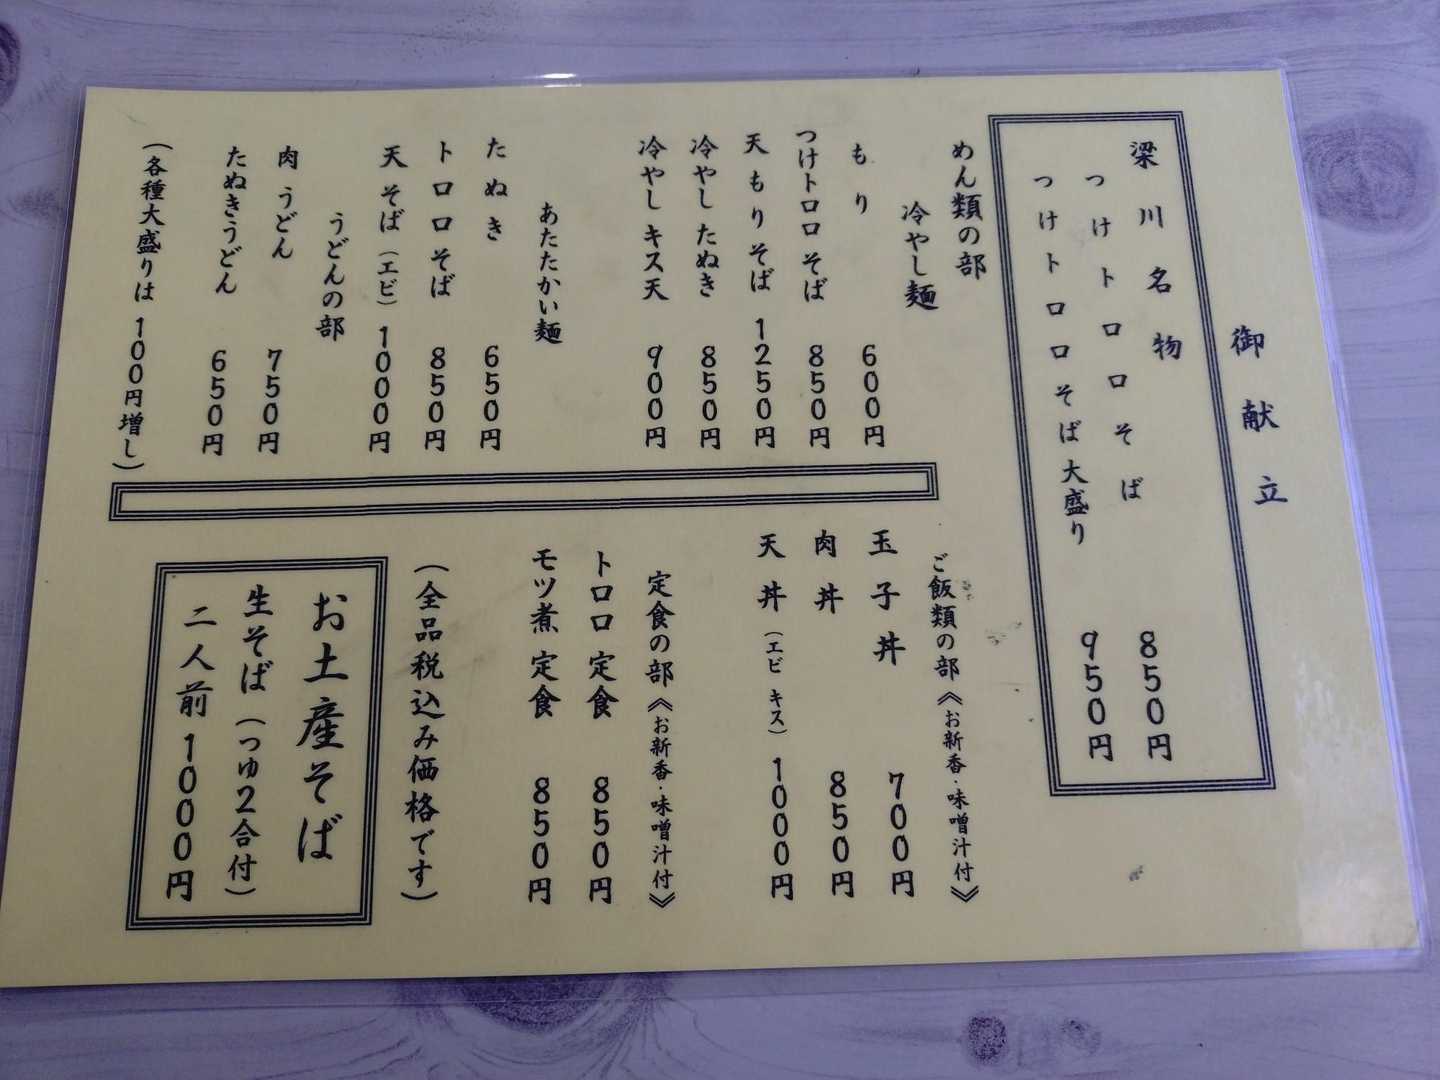 御献立
梁川名物
つけトロロそば 850円
つけトロロそば大盛り 950円
めん類の部
冷やし麺
もり 600円
つけトロロそば 850円
天もりそば 1250円
冷やしたぬき 850円
冷やしキス天 900円
あたたかい麺
たぬき 650円
トロロそば 850円
天そば(エビ) 1000円
うどんの部
肉うどん 750円
たぬきうどん 650円
(各種大盛りは 100円増し)
ご飯類の部《お新香・味噌汁付》
玉子丼 700円
肉丼 850円
天丼(エビ キス) 1000円
定食の部《お新香・味噌汁付》
トロロ定食 850円
モツ煮定食 850円
(全品税込み価格です)
お土産そば
生そば(つゆ2合付)
二人前 1000円